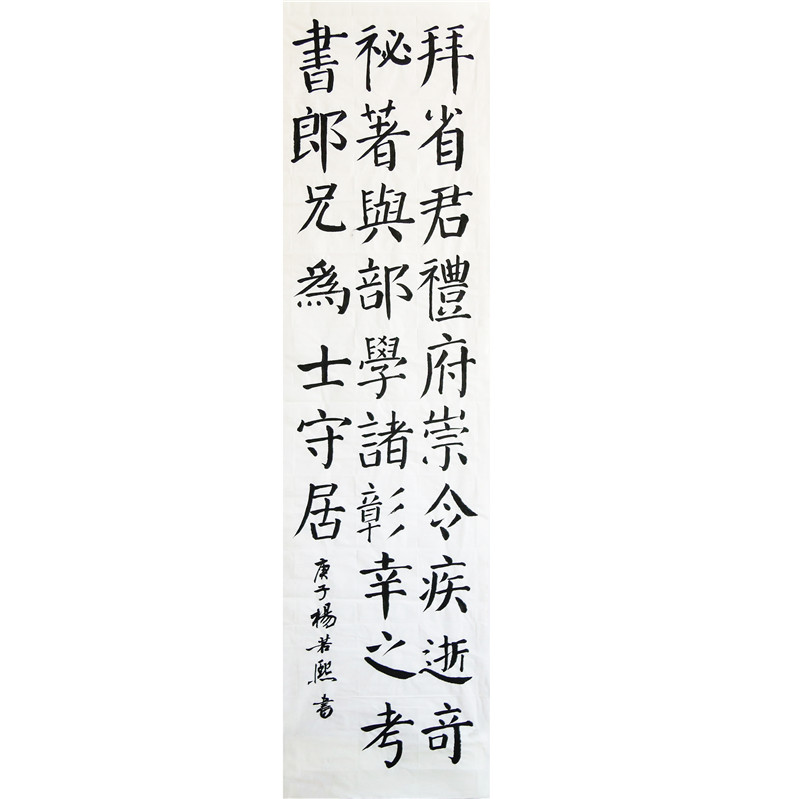 拜省君禮府崇令疾逝奇
祕著與部學諸彰幸之考
書郎兄為士守居
庚子楊若熙書